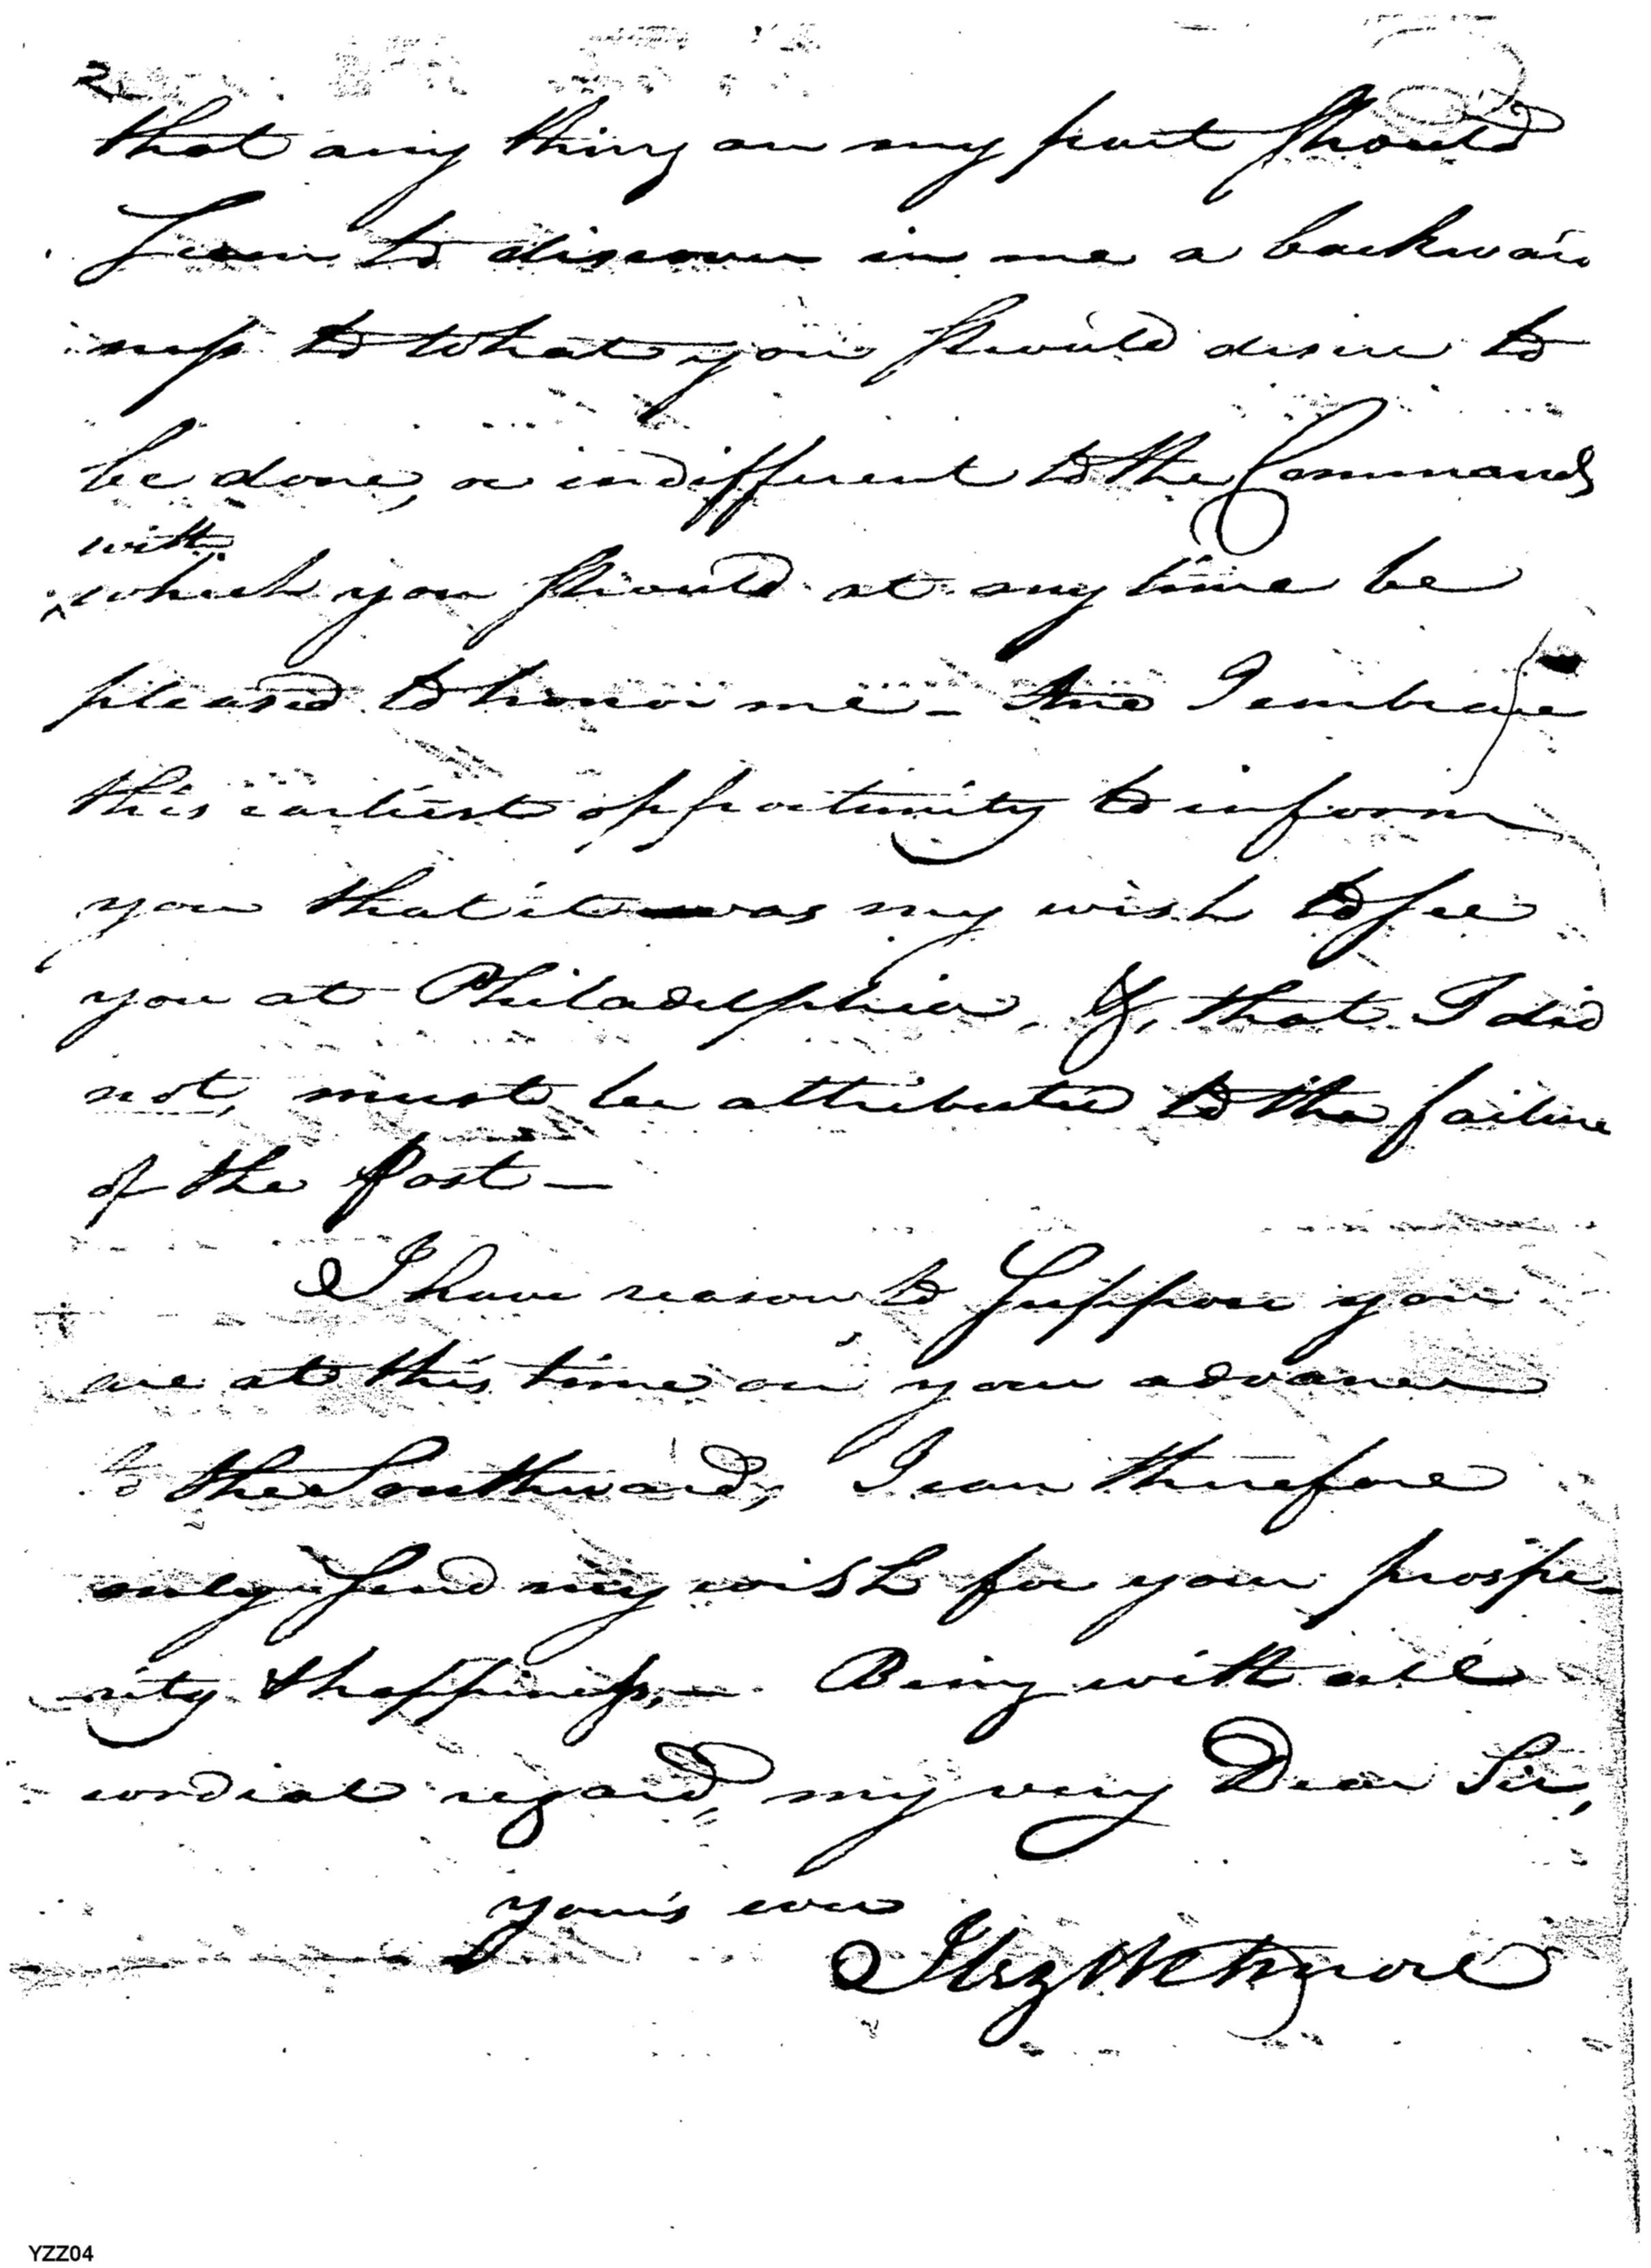 2
that any thing on my part should
seem to discover in me a backward
ness to what you should desire to
be done, or indifferent to the Commands
with
which you should at any time be
pleased to honor me – And I embrace
this earliest opportunity to inform
you that it was my wish to see
you at Philadelphia, &, that I did
not, must be attributed to the failure
of the Post –
I have reason to Suppose you
are at this time on your advance
to the Southward, I can therefore
only send my wish for your prospe-
rity & happiness, – Being with all
cordial regard, my very Dear Sir,
your's ever
Wetmore
YZZ04